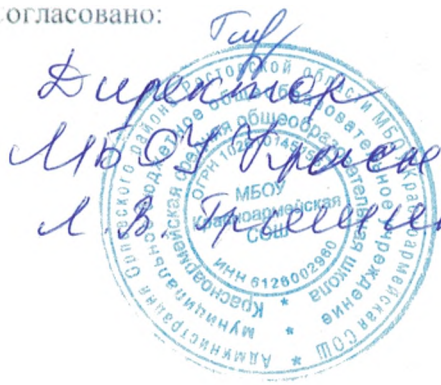 огласовано:
Директор
МБОУ Красно
Л. В.
Администрация Орловского района Ростовской области МБОУ Красноармейская СОШ
муниципальное бюджетное общеобразовательное учреждение
Красноармейская средняя общеобразовательная школа
ОГРН
МБОУ
Красноармейская
СОШ
ИНН 6126002980